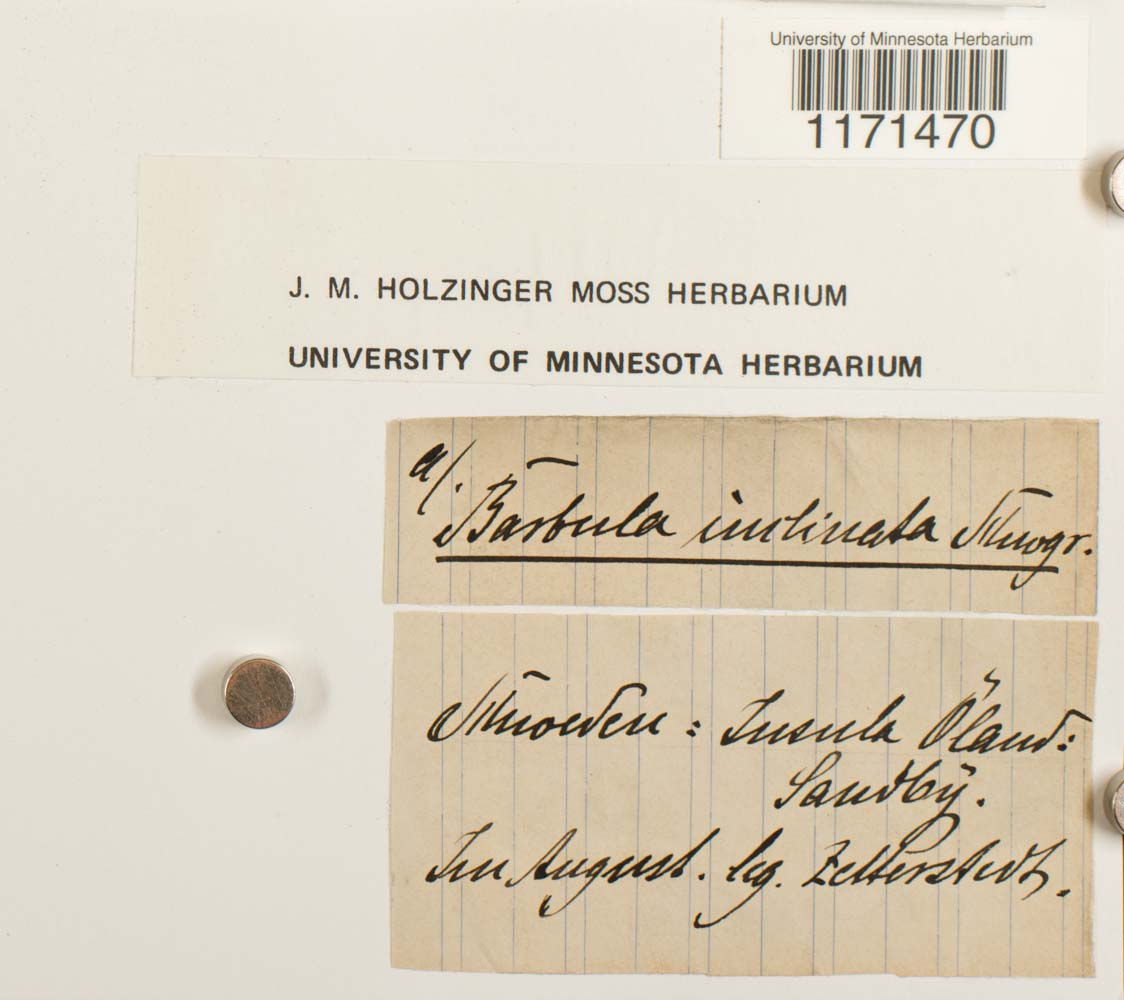 University of Minnesota Herbarium
1171470
J. M. HOLZINGER MOSS HERBARIUM
UNIVERSITY OF MINNESOTA HERBARIUM
a/.
Barbula inclinata Schwgr.
Schweden : Insula Öland :
Sandby.
Im August. leg. Zetterstedt.